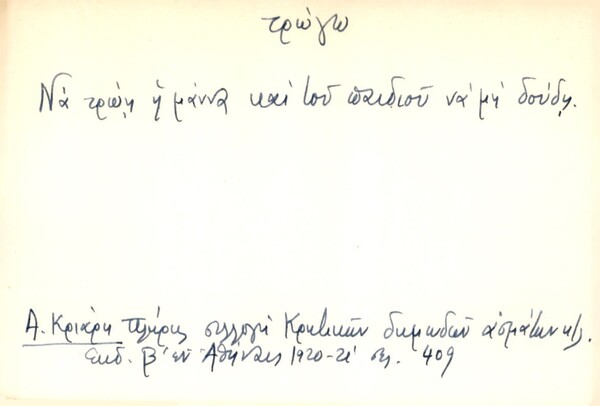 τρώγω
Νά τρώῃ ἡ μάννα καί τοῦ παιδιοῦ νά μή δούδῃ.
Α. Κριάρη Πλήρης συλλογή Κρητικῶν δημωδῶν ἀσμάτων κτλ.
Ἐκδ. β' ἐν Ἀθήναις 1920-21 σελ. 409